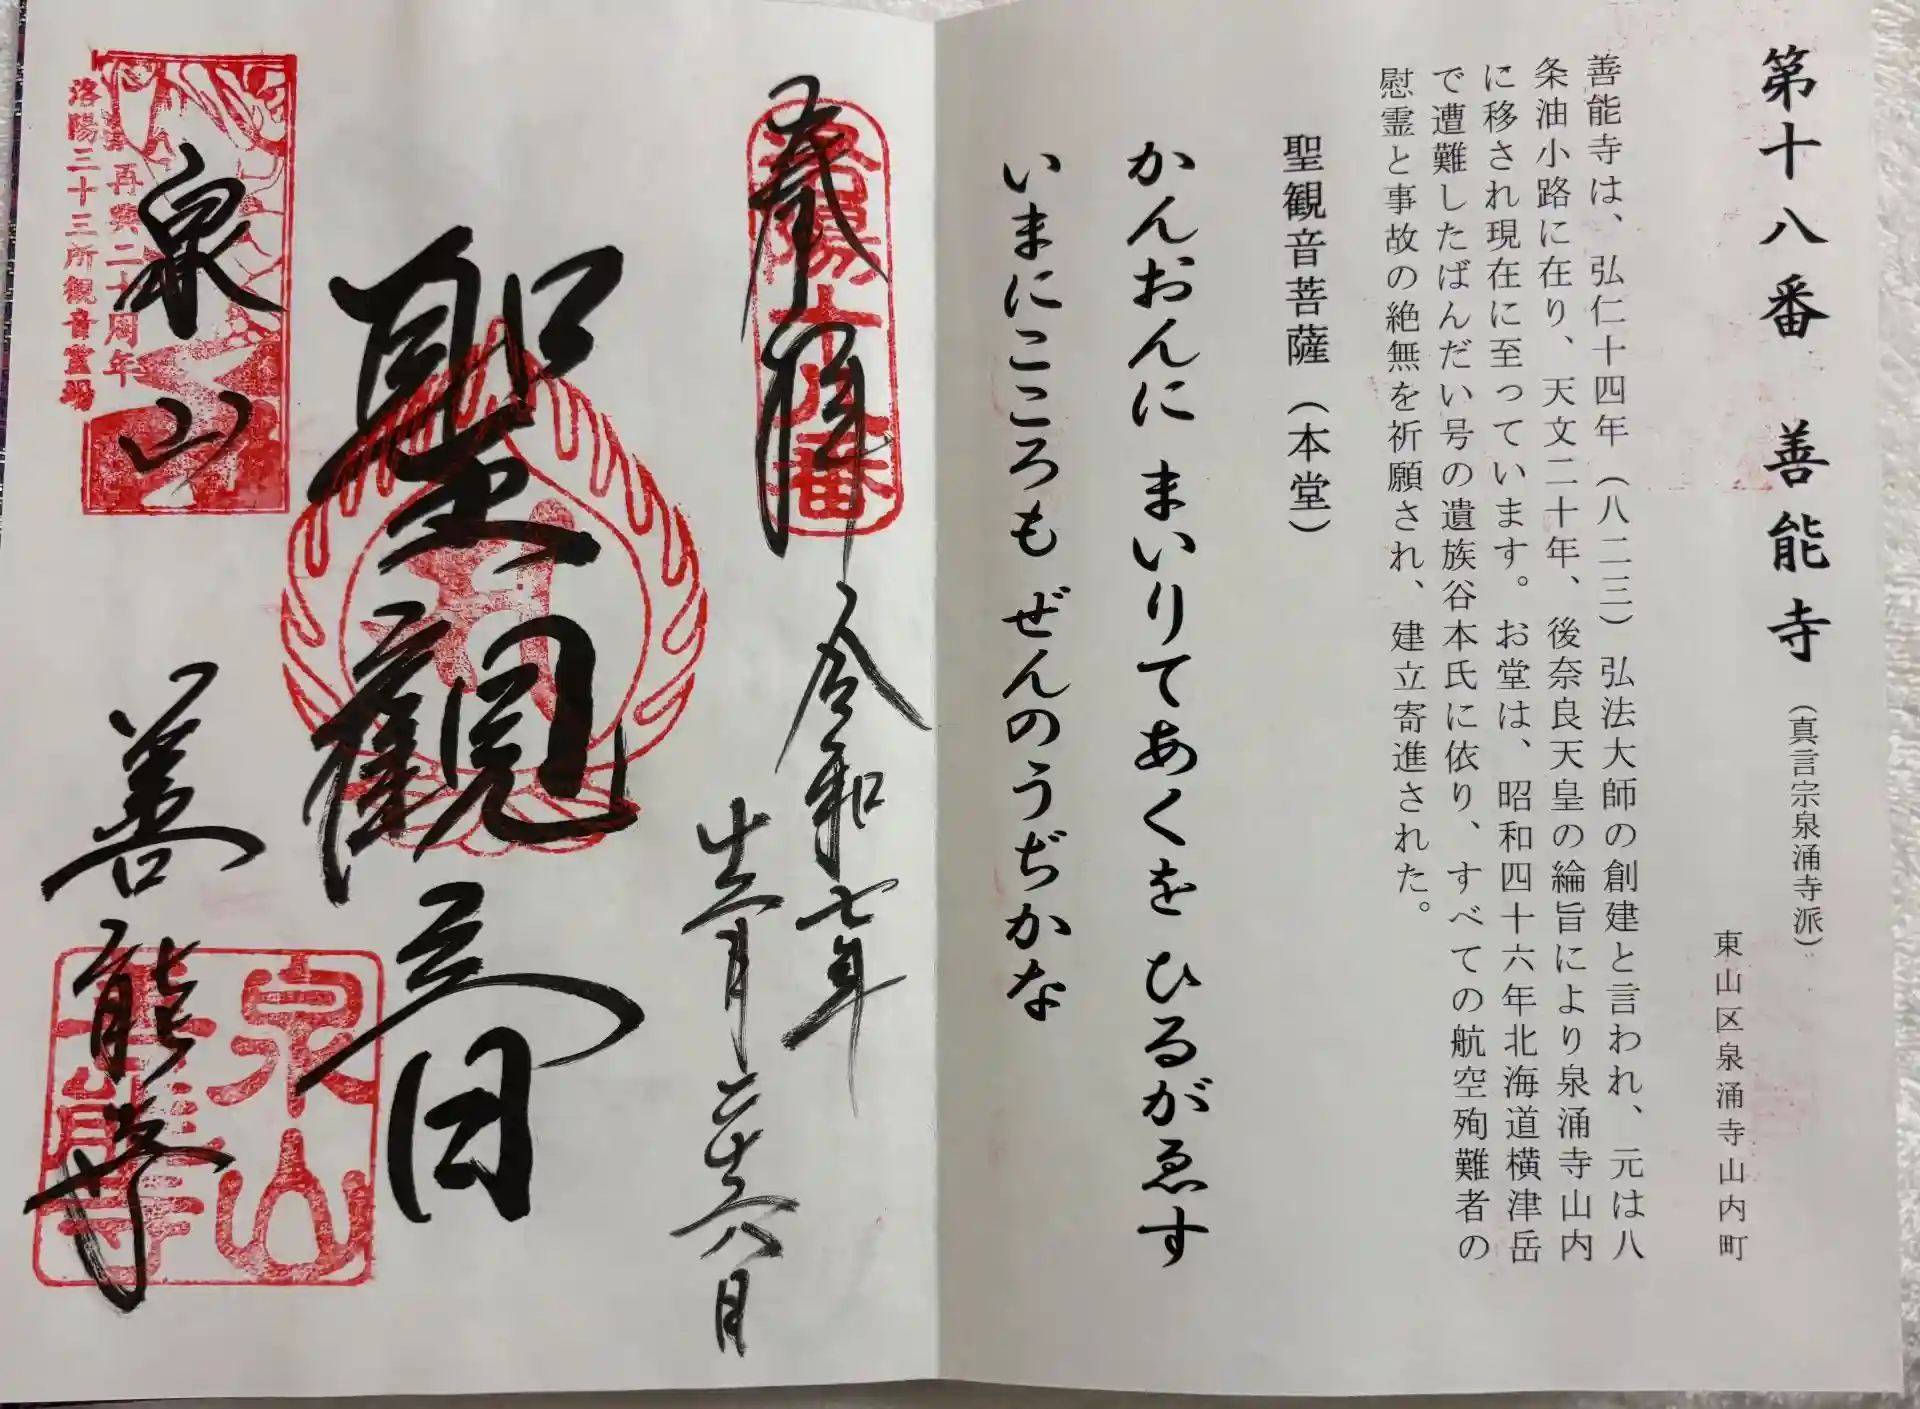 第十八番 善能寺（真言宗泉涌寺派）
東山区泉涌寺山内町
善能寺は、弘仁十四年（八二三）弘法大師の創建と言われ、元は八
条油小路に在り、天文二十年、後奈良天皇の綸旨により泉涌寺山内
に移され現在に至っています。お堂は、昭和四十六年北海道横津岳
で遭難したばんだい号の遺族谷本氏に依り、すべての航空殉難者の
慰霊と事故の絶無を祈願され、建立寄進された。
聖観音菩薩（本堂）
かんおんに まいりてあくを ひるがゑす
いまにこころも ぜんのうぢかな
奉拝
洛陽十八番
令和七年
十二月二十八日
聖観音
泉山
善能寺
再興二十周年
洛陽三十三所観音霊場
泉山
善能寺